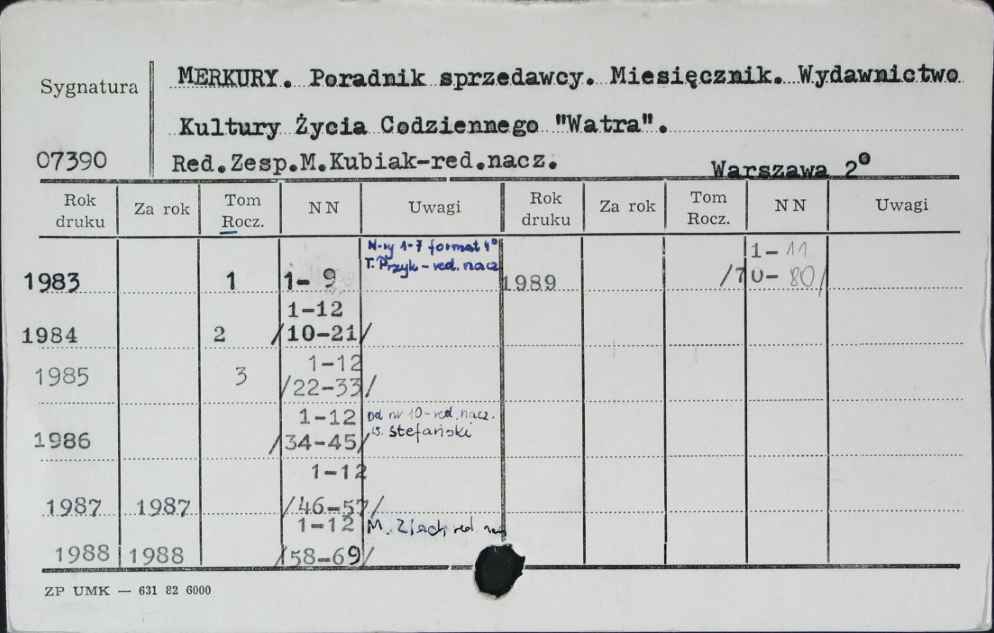 Sygnatura
MERKURY. Poradnik sprzedawcy. Miesięcznik. Wydawnictwo
Kultury Życia Codziennego "Watra".
07390
Red.Zesp.M.Kubiak-red.nacz.
Warszawa 2°
Rok druku Za rok Tom Rocz. NN Uwagi Rok druku Za rok Tom Rocz. NN Uwagi
N-ry 1-7 format 4° 1-11
T. Przyk-red.nacz
1983 1 1-9 1989 /70-80/
1-12
1984 2 /10-21/
1-12
1985 3 /22-33/
1-12 od nr 10-red.nacz.
1986 /34-45/ Stefański
1-12
1987 1987 /46-57/
1-12 M. red
1988 1988 /58-69/
ZP UMK — 631 82 6000